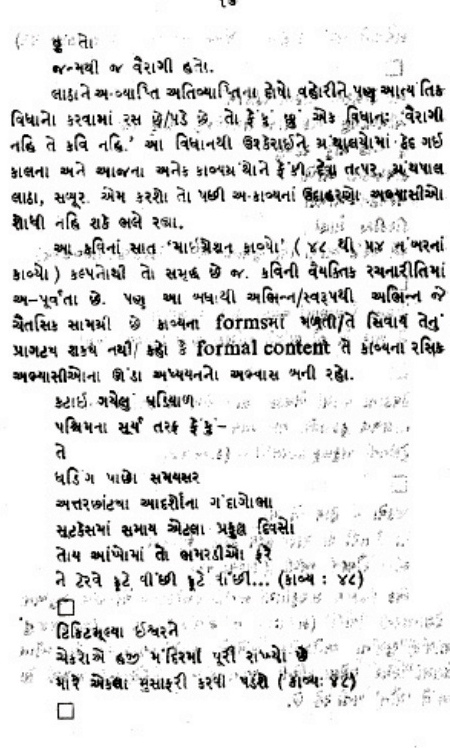 ૧૭
હું તો
જન્મથી જ વૈરાગી હતો.
લાઠાને અ-વ્યાપ્તિ અતિવ્યાપ્તિના દોષો વહોરીને પણ આત્યંતિક
વિધાનો કરવામાં રસ છે/પડે છે. તો ફેંકું છું એક વિધાન: ‘વૈરાગી
નહિ તે કવિ નહિ.’ આ વિધાનથી ઉશ્કેરાઈને ગ્રંથાલયોમાં કેદ ગઈ
કાલના અને આજના અનેક કાવ્યગ્રંથોને ફેંકી દેવા તત્પર, ગ્રંથપાલ
લાઠા, સબૂર. એમ કરશો તો પછી અ-કાવ્યનાં ઉદાહરણો અભ્યાસીઓ
શોધી નહિ શકે ભલે રહ્યા.
આ કવિનાં સાત ‘માઈગ્રેશન કાવ્યો’ (૪૮ થી ૫૪ નંબરનાં
કાવ્યો) કલ્પનોથી તો સમૃદ્ધ છે જ. કવિની વૈયક્તિક રચનારીતિમાં
અ-પૂર્વતા છે. પણ આ બધાથી અભિન્ન/સ્વરૂપથી અભિન્ન જે
ચૈતસિક સામગ્રી છે કાવ્યના formsમાં મળતી/તે સિવાય તેનું
પ્રાગટ્ય શક્ય નથી/ કહો કે formal content તે કાવ્યના રસિક
અભ્યાસીઓના ઊંડા અધ્યયનનો અભ્યાસ બની રહો.
કટાઈ ગયેલું ઘડિયાળ
પશ્ચિમના સૂર્ય તરફ ફેંકું-
તે
ધડિંગ પાછો સમયસર
અત્તરછાંટ્યા આદર્શોના ગંદાગોભા
સૂટકેસમાં સમાય એટલા પ્રફુલ્લ દિવસો
તોય આંખોમાં તો ભમરડીઓ ફરે
ને ટેરવે ફૂટે વીંછી ફૂટે વીંછી... (કાવ્ય : ૪૮)
ટિકિટમૂલ્યા ઈશ્વરને
ચેકરોએ હજી મંદિરમાં પૂરી રાખ્યો છે
મારે એકલા મુસાફરી કરવી પડશે (કાવ્ય: ૪૮)